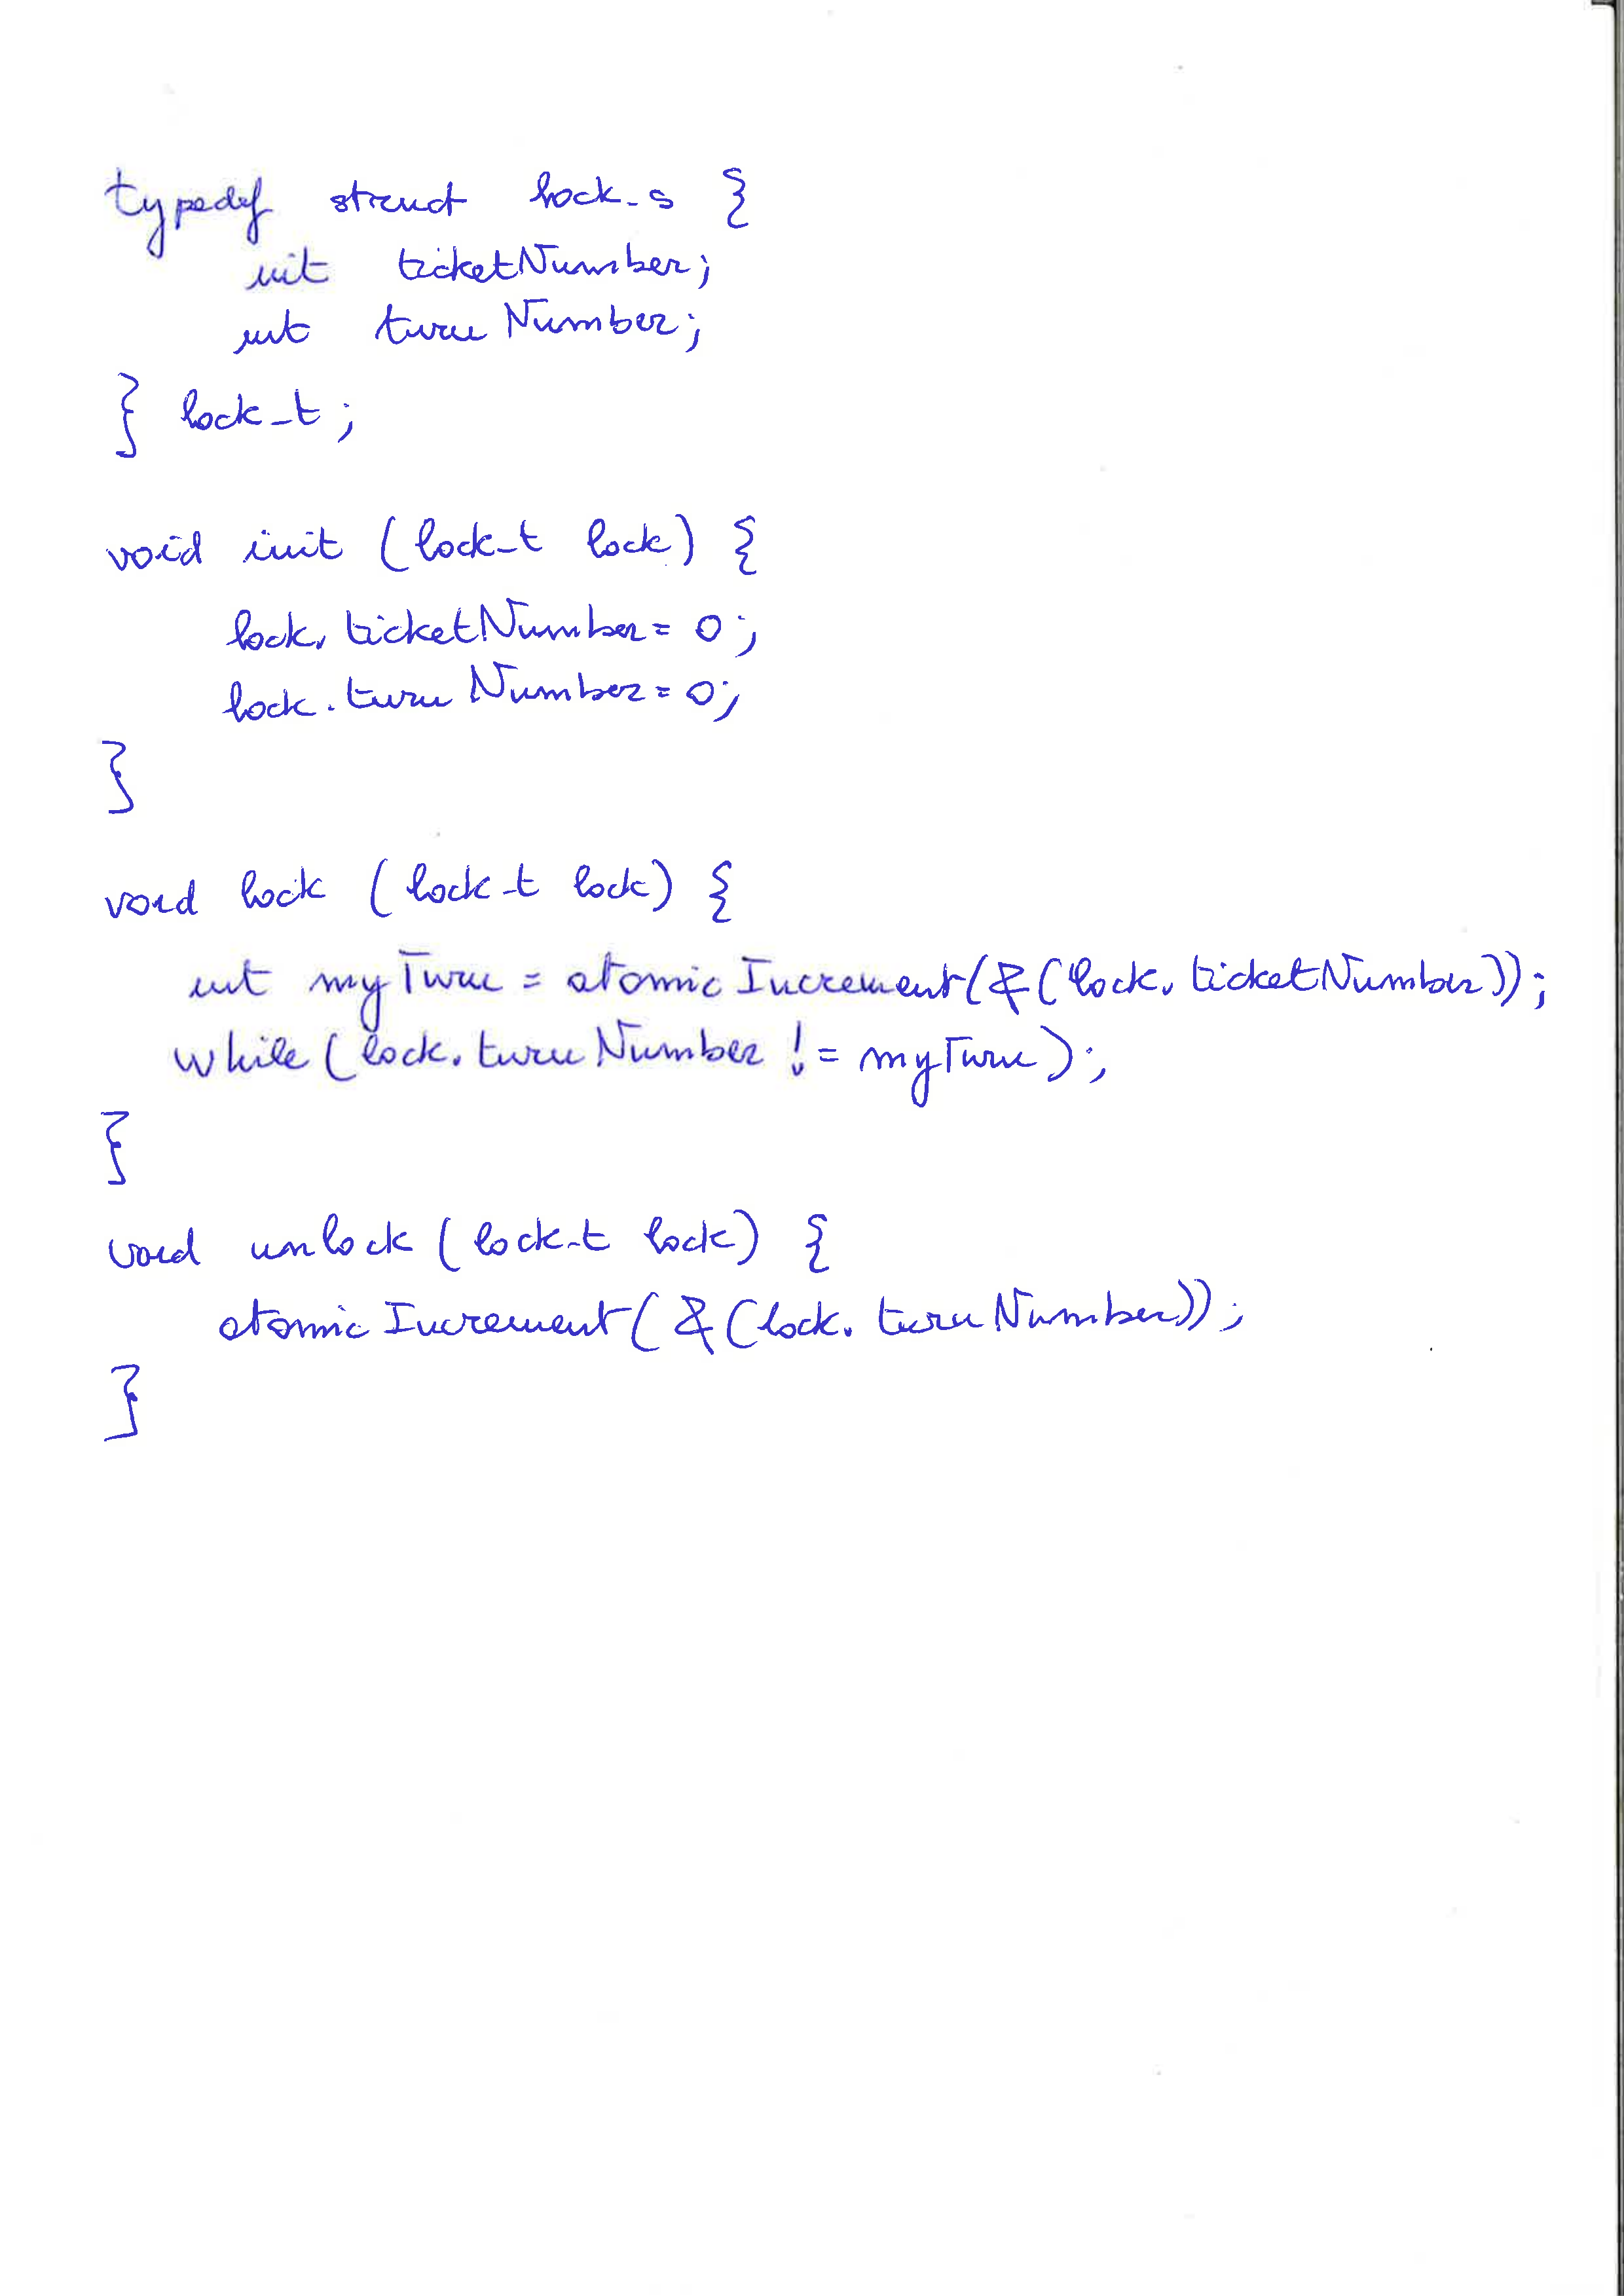 typedef struct lock_s {
int ticketNumber;
int turnNumber;
} lock_t;
void init (lock_t lock) {
lock.ticketNumber = 0;
lock.turnNumber = 0;
}
void lock (lock_t lock) {
int myTurn = atomicIncrement(&(lock.ticketNumber));
while (lock.turnNumber != myTurn);
}
void unlock (lock_t lock) {
atomicIncrement(&(lock.turnNumber));
}